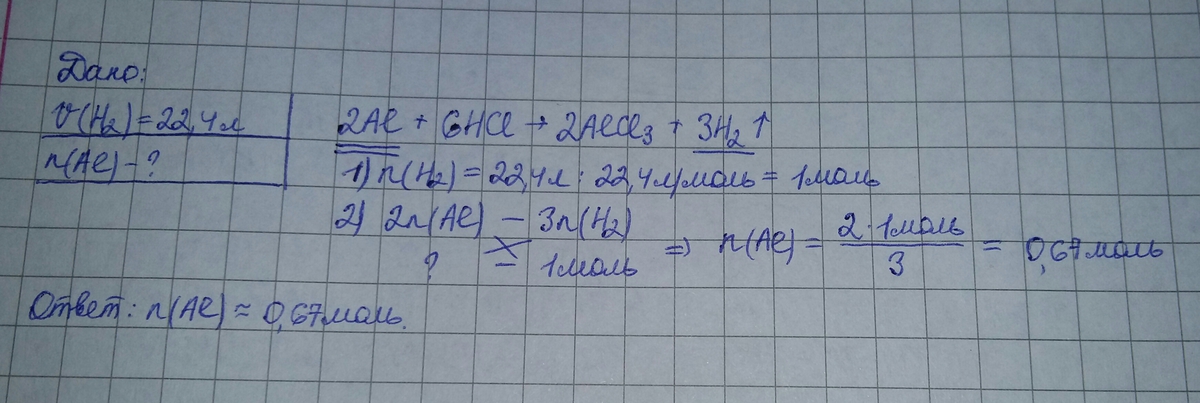 Дано:
V(H₂) = 22,4 л
n(Al) - ?
2Al + 6HCl → 2AlCl₃ + 3H₂↑
1) n(H₂) = 22,4 л : 22,4 л/моль = 1 моль
2) 2n(Al) — 3n(H₂)
? — 1 моль ⇒ n(Al) = 2·1 моль / 3 = 0,67 моль
Ответ: n(Al) ≈ 0,67 моль.